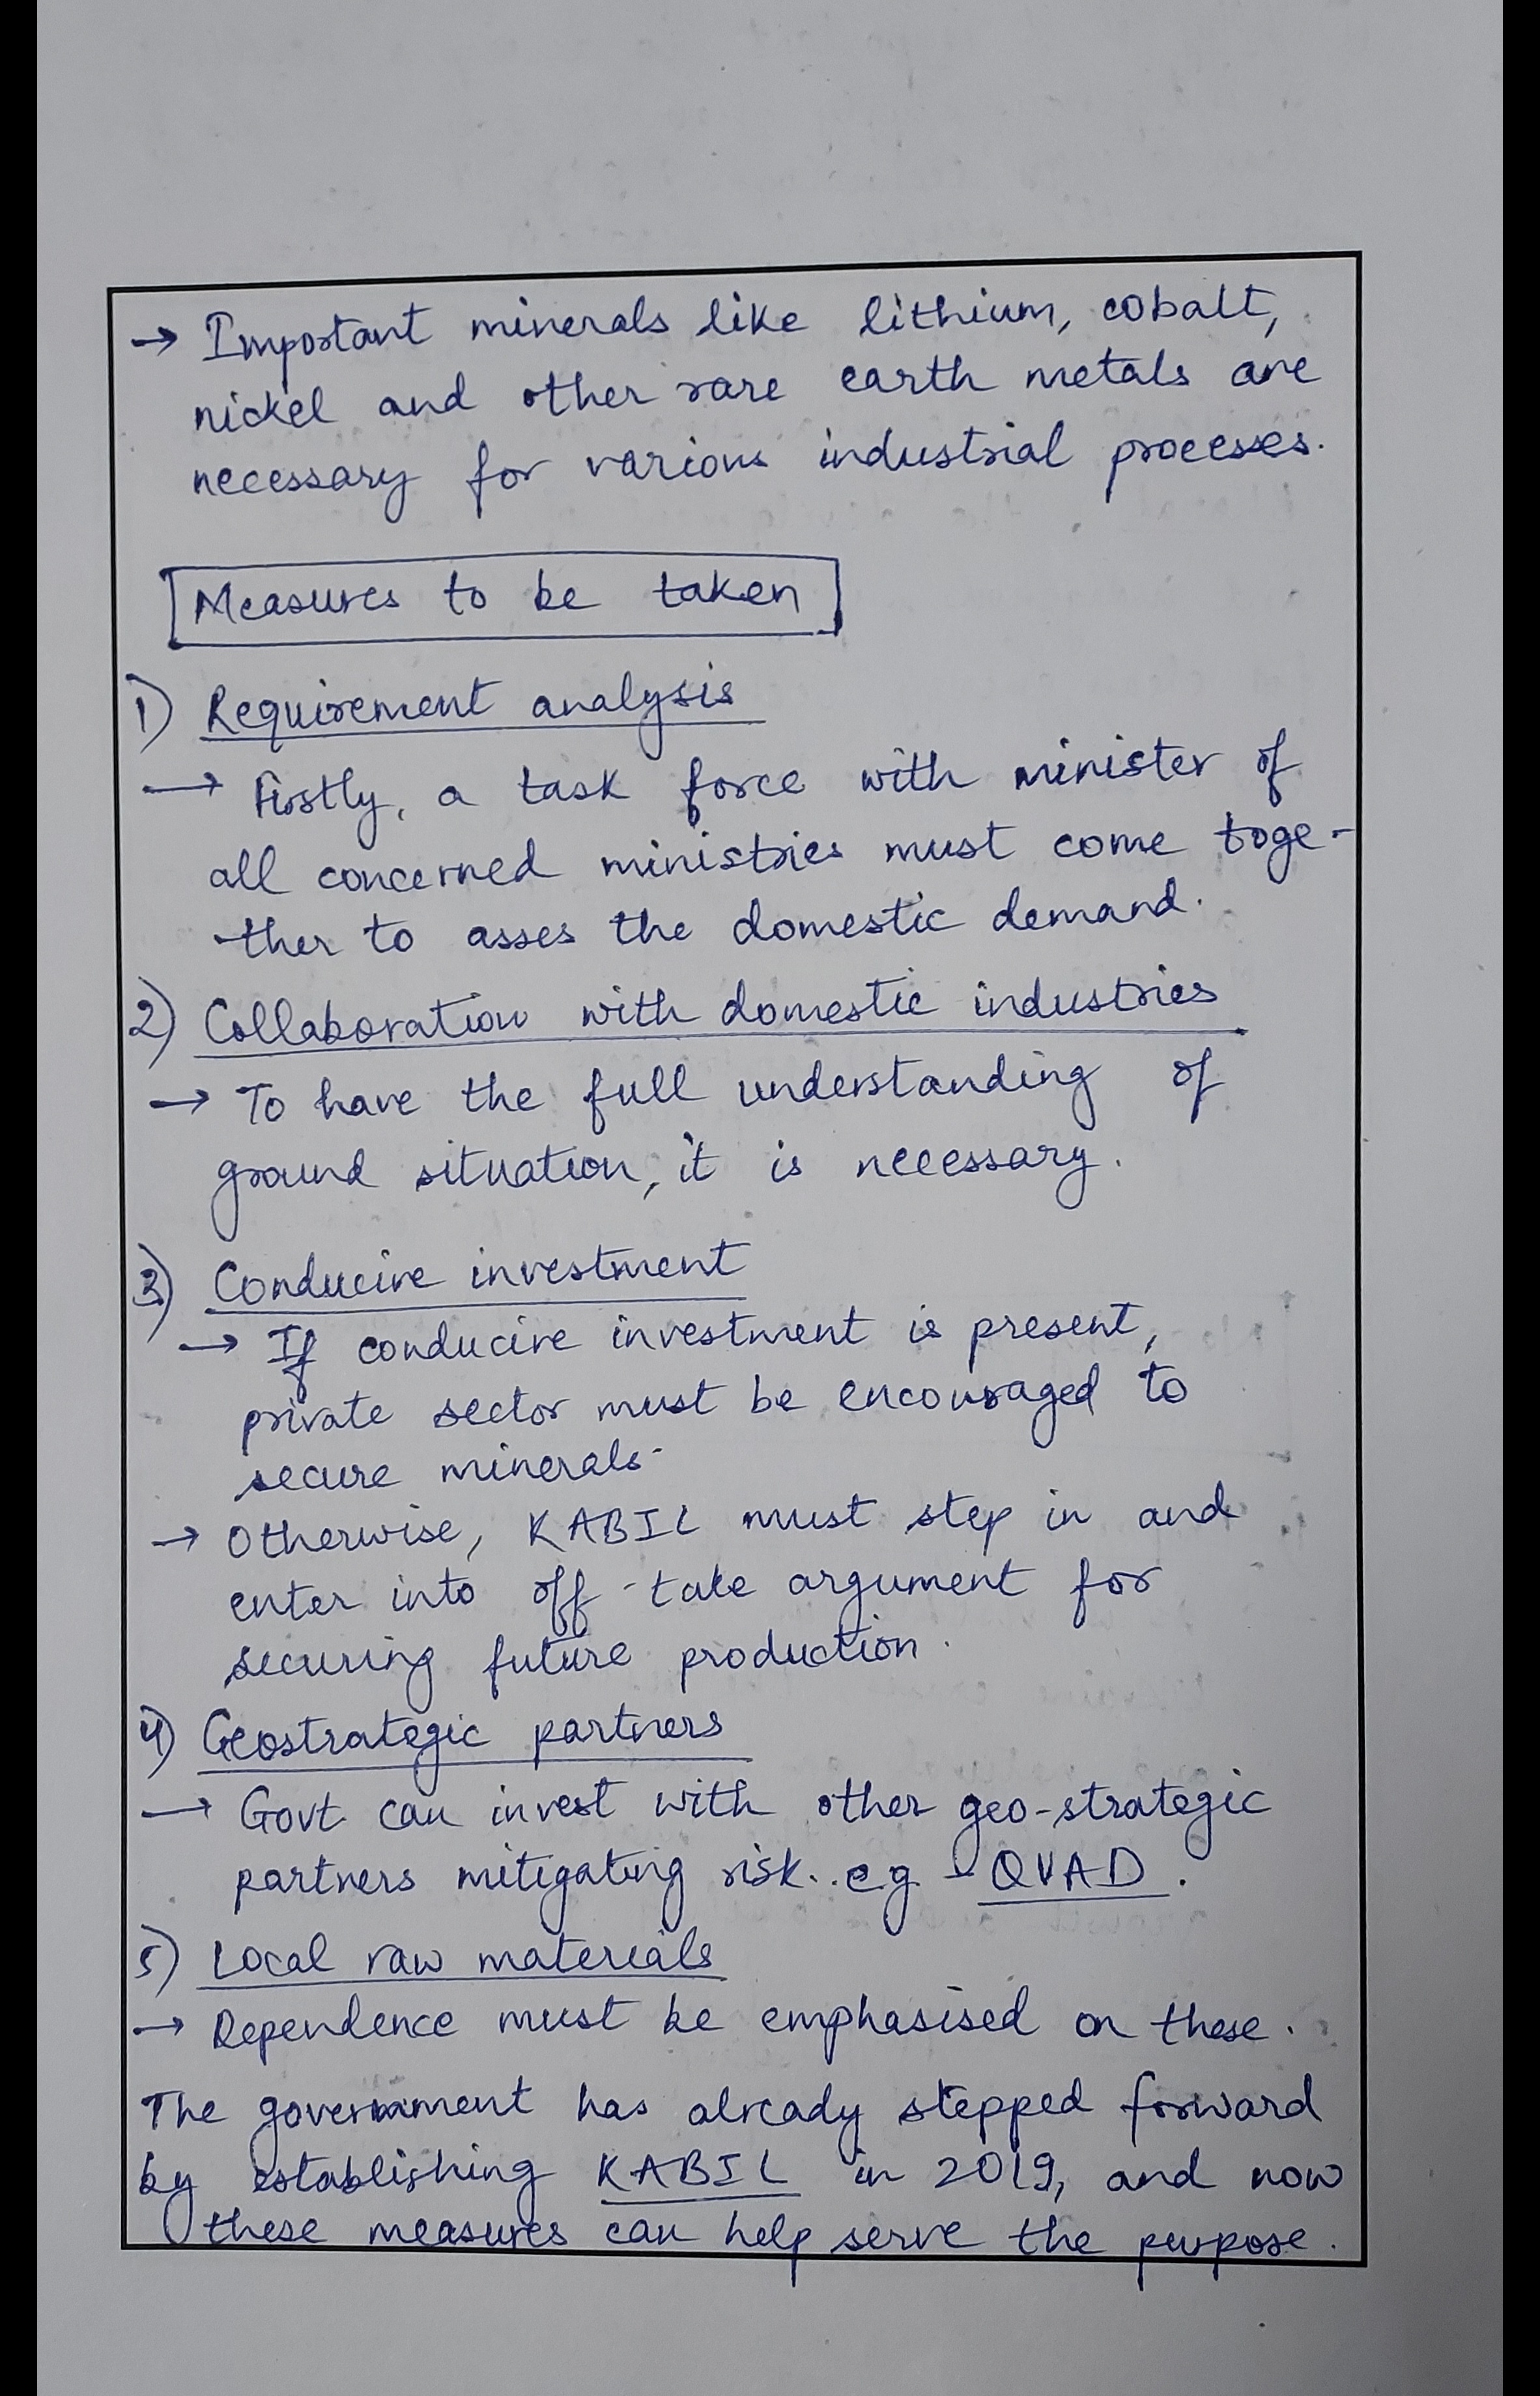 → Important minerals like lithium, cobalt,
nickel and other rare earth metals are
necessary for various industrial processes.
Measures to be taken
1) Requirement analysis
→ Firstly, a task force with minister of
all concerned ministries must come toge-
-ther to asses the domestic demand.
2) Collaboration with domestic industries
→ To have the full understanding of
ground situation, it is necessary.
3) Conducive investment
→ If conducive investment is present,
private sector must be encouraged to
secure minerals.
→ Otherwise, KABIL must step in and
enter into off-take argument for
securing future production.
4) Geostrategic partners
→ Govt. can invest with other geo-strategic
partners mitigating risk. e.g - QUAD.
5) Local raw materials
→ Dependence must be emphasised on these.
The government has already stepped forward
by establishing KABIL in 2019, and now
these measures can help serve the purpose.